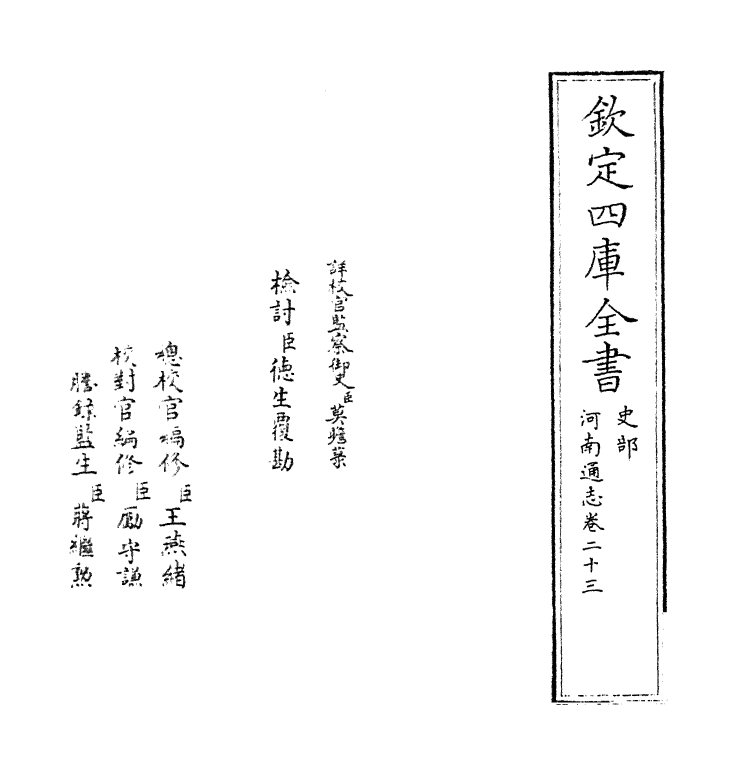 欽定四庫全書
史部
河南通志卷二十三
詳校官監察御史臣莫瞻菉
檢討臣德生覆勘
總校官編修臣王燕緒
校對官編修臣勵守謙
謄錄監生臣蔣繼勲